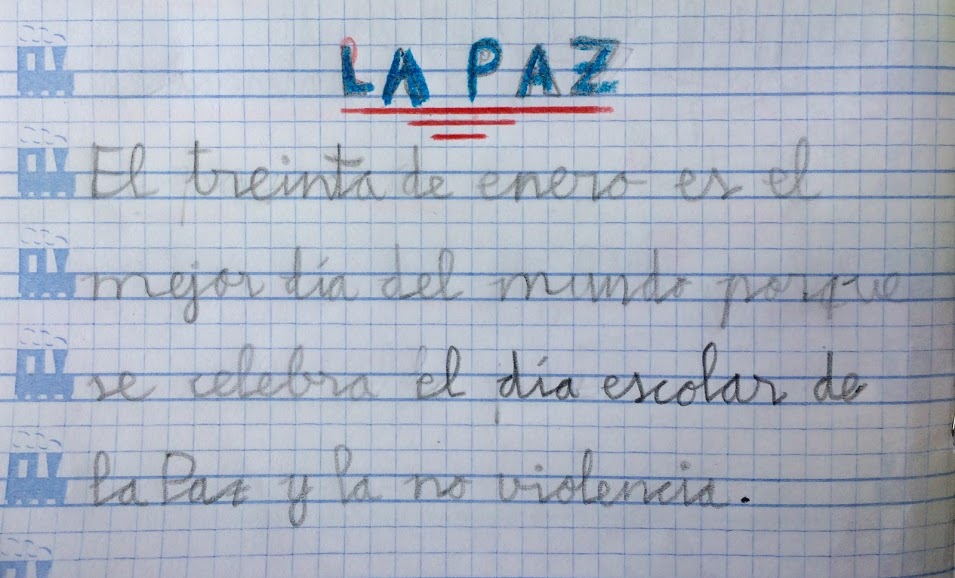 LA PAZ
El treinta de enero es el
mejor día del mundo porque
se celebra el día escolar de
la Paz y la no violencia.